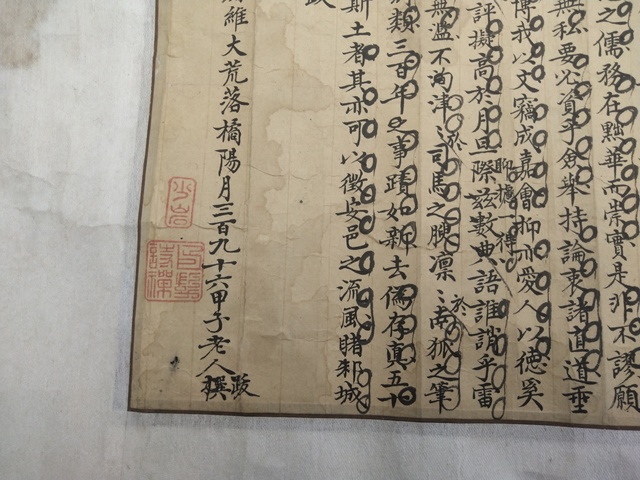 之儒務在黜華而崇實是非不謬願
無私要必資乎僉舉持論衷諸直道垂
博我以文竊成嘉會抑亦愛人以德奚
評擬高於月旦際茲數典語誰誚乎雷
無濫不洵津〻於司馬之腴凜〻於南狐之筆
類三百年之事蹟如新去偽存真五十
斯土者其亦可以徵安邑之流風睹郲城
維大荒落橘陽月三百九十六甲子老人跋撰
少岩